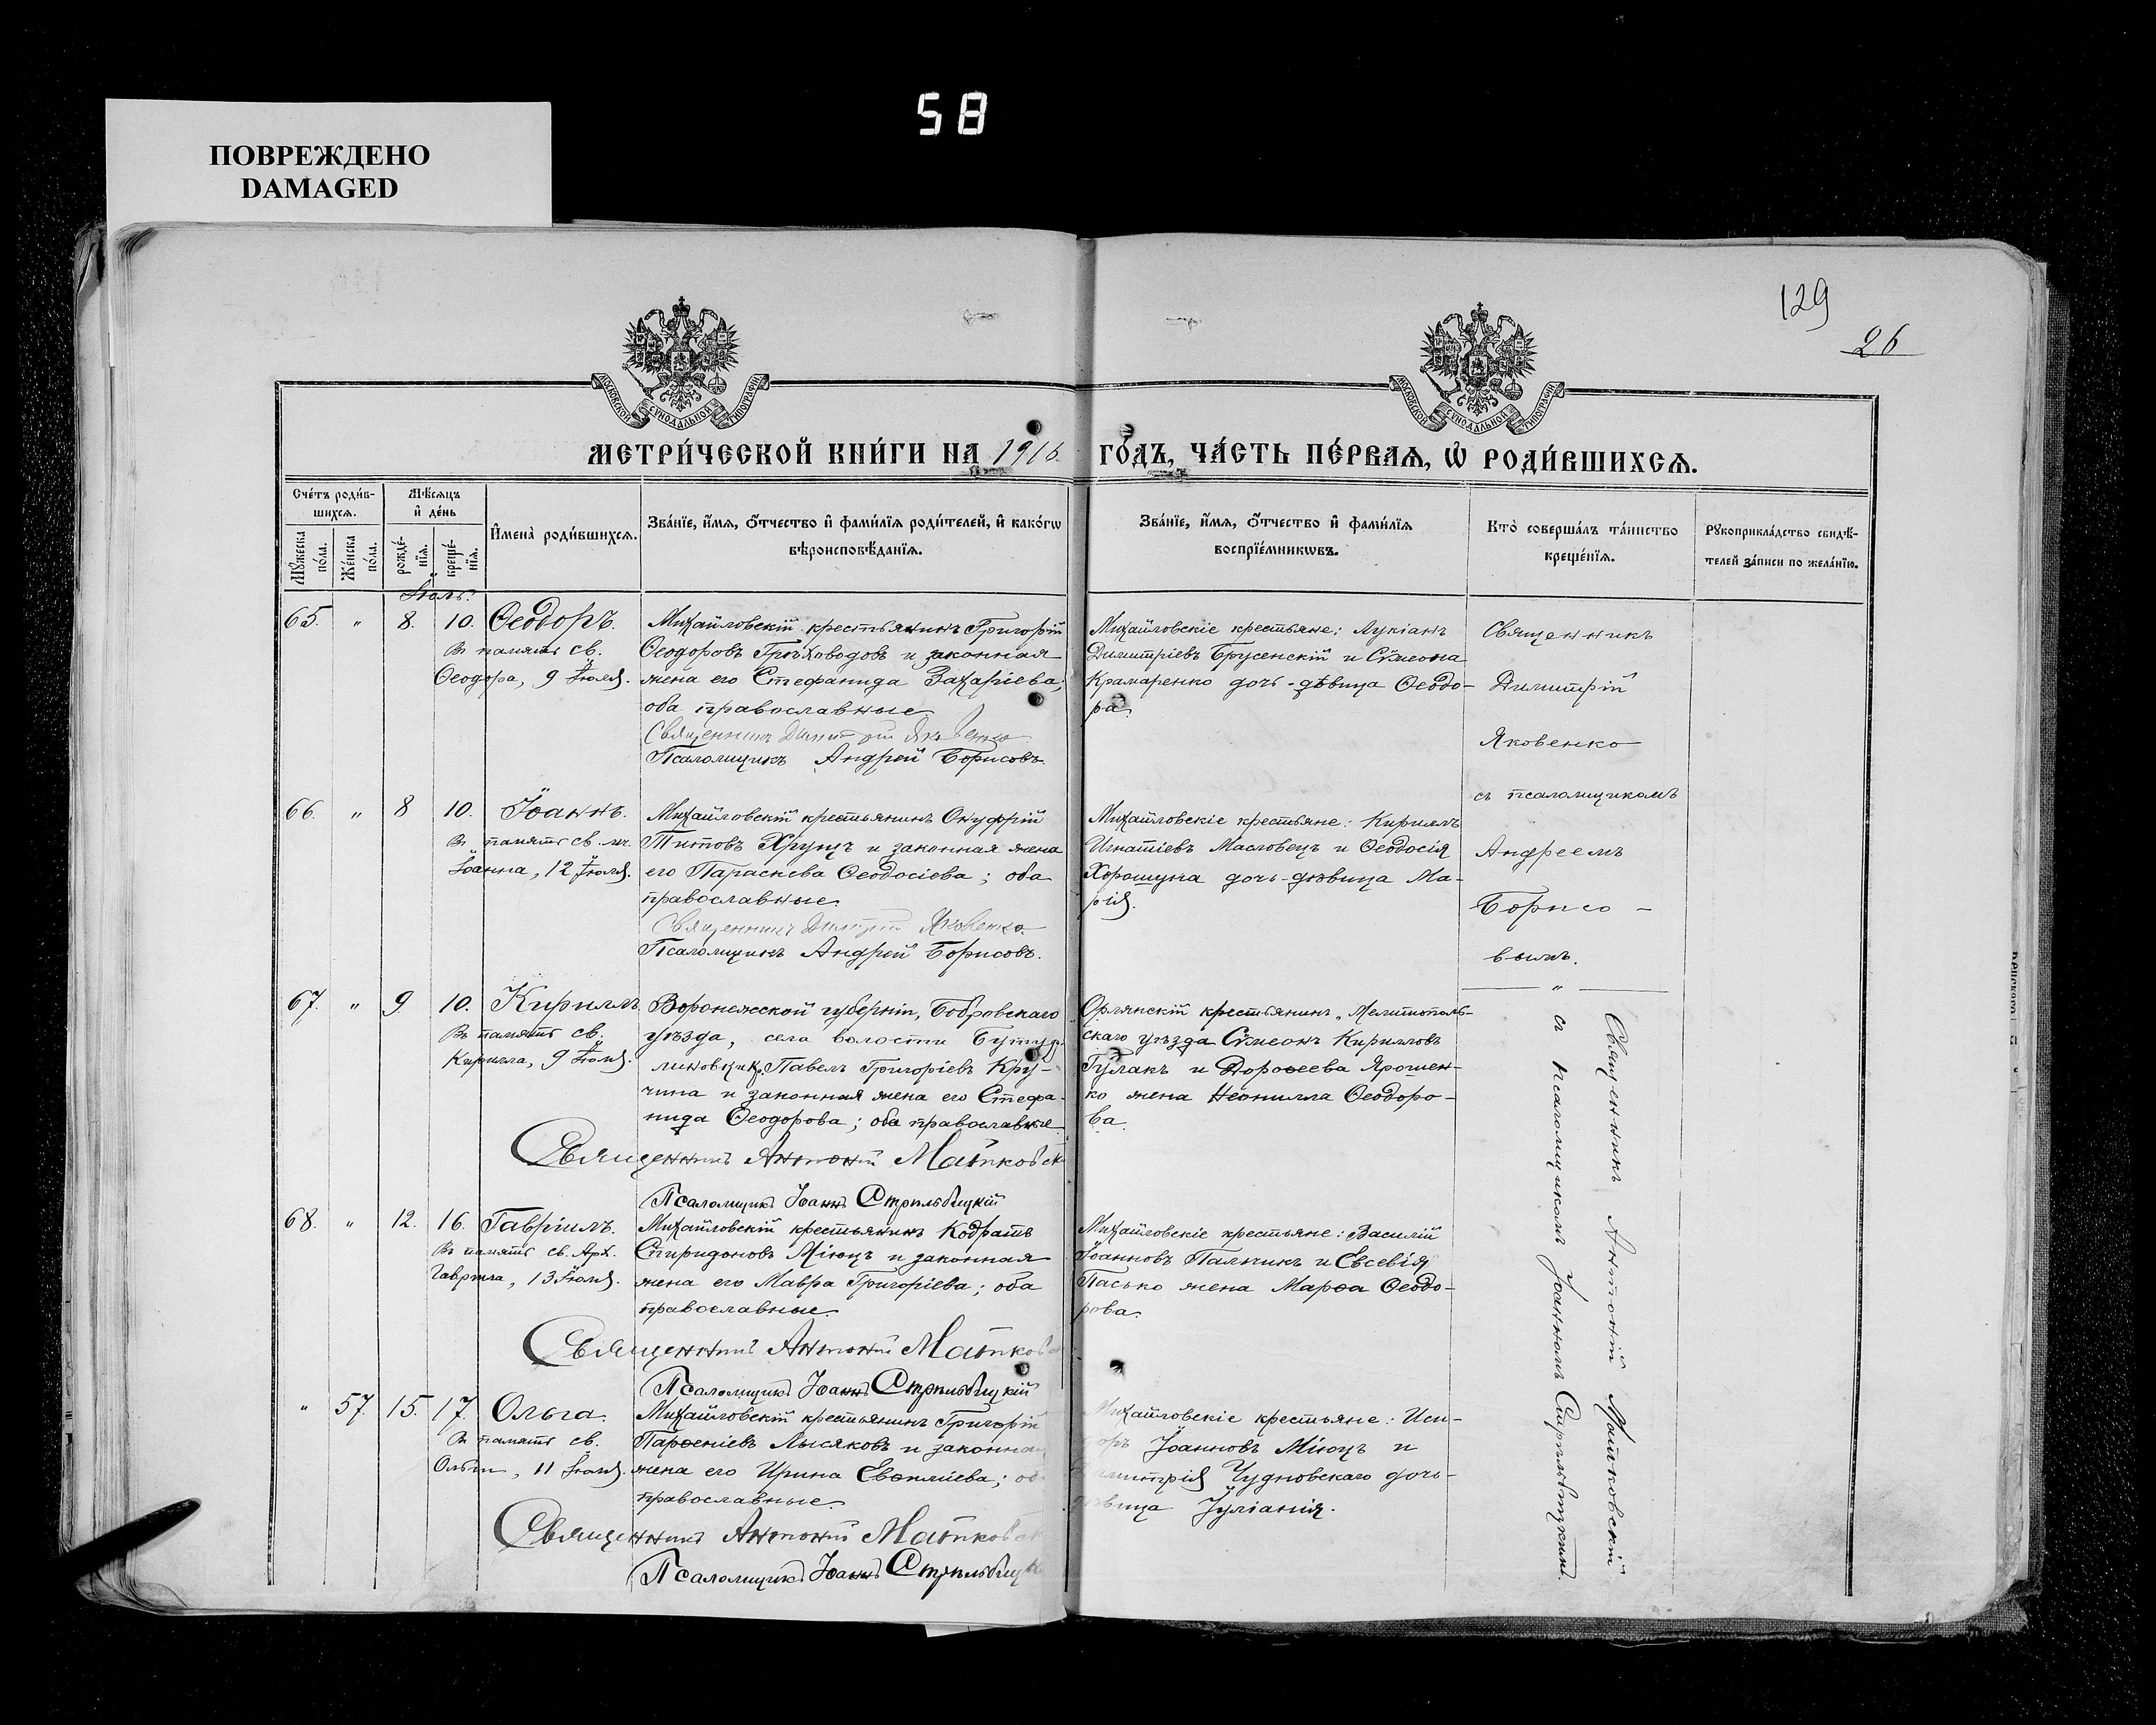 58
ПОВРЕЖДЕНО
DAMAGED
129
26
МОСКОВСКОЙ СѴНОДАЛЬНОЙ ТИПОГРАФІИ
МОСКОВСКОЙ СѴНОДАЛЬНОЙ ТИПОГРАФІИ
МЕТРИ́ЧЕСКОЙ КНИ́ГИ НА 1916 ГО́ДЪ, ЧА́СТЬ ПЕ́РВАѦ, Ѡ РОДИ́ВШИХСѦ.
Сче́тъ роди́в-
шихсѧ.
Мꙋ́жеска по́ла.
Же́нска по́ла.
Мѣ́сѧцъ
и҆ де́нь
рожде́-
нїѧ.
креще́-
нїѧ.
И҆мена̀ роди́вшихсѧ.
Зва́нїе, и҆́мѧ, ѻ҆́тчество и҆ фами́лїѧ роди́телей, и҆ како́гѡ
вѣроисповѣ́данїѧ.
Зва́нїе, и҆́мѧ, ѻ҆́тчество и҆ фами́лїѧ
воспрїе́мникѡвъ.
Кто̀ соверша́лъ та́инство
креще́нїѧ.
Рꙋкоприкла́дство свидѣ́-
телей за́писи по жела́нїю.
Іюль.
65. " 8. 10. Ѳеодоръ.
Въ память св.
Ѳеодора, 9 Іюля.
Михайловскій крестьянинъ Григорій
Ѳеодоровъ Грѣховодовъ и законная
жена его Стефанида Захаріева;
оба православные
Священникъ Димитрій Яковенко
Псаломщикъ Андрей Борисовъ.
Михайловскіе крестьяне: Лукіанъ
Димитріевъ Брусенскій и Сѵмеона
Крамаренко дочь-дѣвица Ѳеодо-
ра.
Священникъ
Димитрій
Яковенко
съ псаломщикомъ
Андреемъ
Борисо-
вымъ.
66. " 8 10. Іоаннъ.
Въ память св. мч.
Іоанна, 12 Іюля.
Михайловскій крестьянинъ Онуфрій
Титовъ Хрущъ и законная жена
его Параскева Ѳеодосіева; оба
православные.
Священникъ Димитрій Яковенко.
Псаломщикъ Андрей Борисовъ.
Михайловскіе крестьяне: Кириллъ
Игнатіевъ Масловецъ и Ѳеодосія
Хорошуна дочь-дѣвица Ма-
рія.
67. " 9 10. Кириллъ
Въ память св.
Кирилла, 9 Іюля.
Воронежской губерніи, Бобровскаго
уѣзда, села волости Бутур-
линовки, Павелъ Григоріевъ Кру-
чина и законная жена его Стефа-
нида Ѳеодорова; оба православные
Священникъ Антоній Матковск
Псаломщикъ Іоаннъ Стрильбицкій
Орлянскій крестьянинъ, Мелитополь-
скаго уѣзда Сѵмеонъ Кирилловъ
Гулакъ и Дороѳеева Ярошен-
ко жена Неонилла Ѳеодоро-
ва.
Священникъ Антоній Матковскій
съ псаломщикомъ Іоанномъ Стрильбицкимъ.
68. " 12. 16. Гавріилъ.
Въ память св. Арх.
Гавріила, 13 Іюля.
Михайловскій крестьянинъ Кодратъ
Спиридоновъ Міюцъ и законная
жена его Мавра Григоріева; оба
православные.
Священникъ Антоній Матковск
Псаломщикъ Іоаннъ Стрильбицкій
Михайловскіе крестьяне: Василій
Іоанновъ Палчикъ и Евсевія
Пасько жена Марѳа Ѳеодо-
рова.
" 57. 15. 17. Ольга.
Въ память св.
Ольги, 11 Іюля.
Михайловскій крестьянинъ Григорій
Парѳеніевъ Лысяковъ и законная
жена его Ирина Евѳиміева; об
православные.
Священникъ Антоній Матковск
Псаломщикъ Іоаннъ Стрильбицк
Михайловскіе крестьяне: Иси-
доръ Іоанновъ Міюцъ и
Димитрія Чудновскаго дочь-
дѣвица Іуліанія.